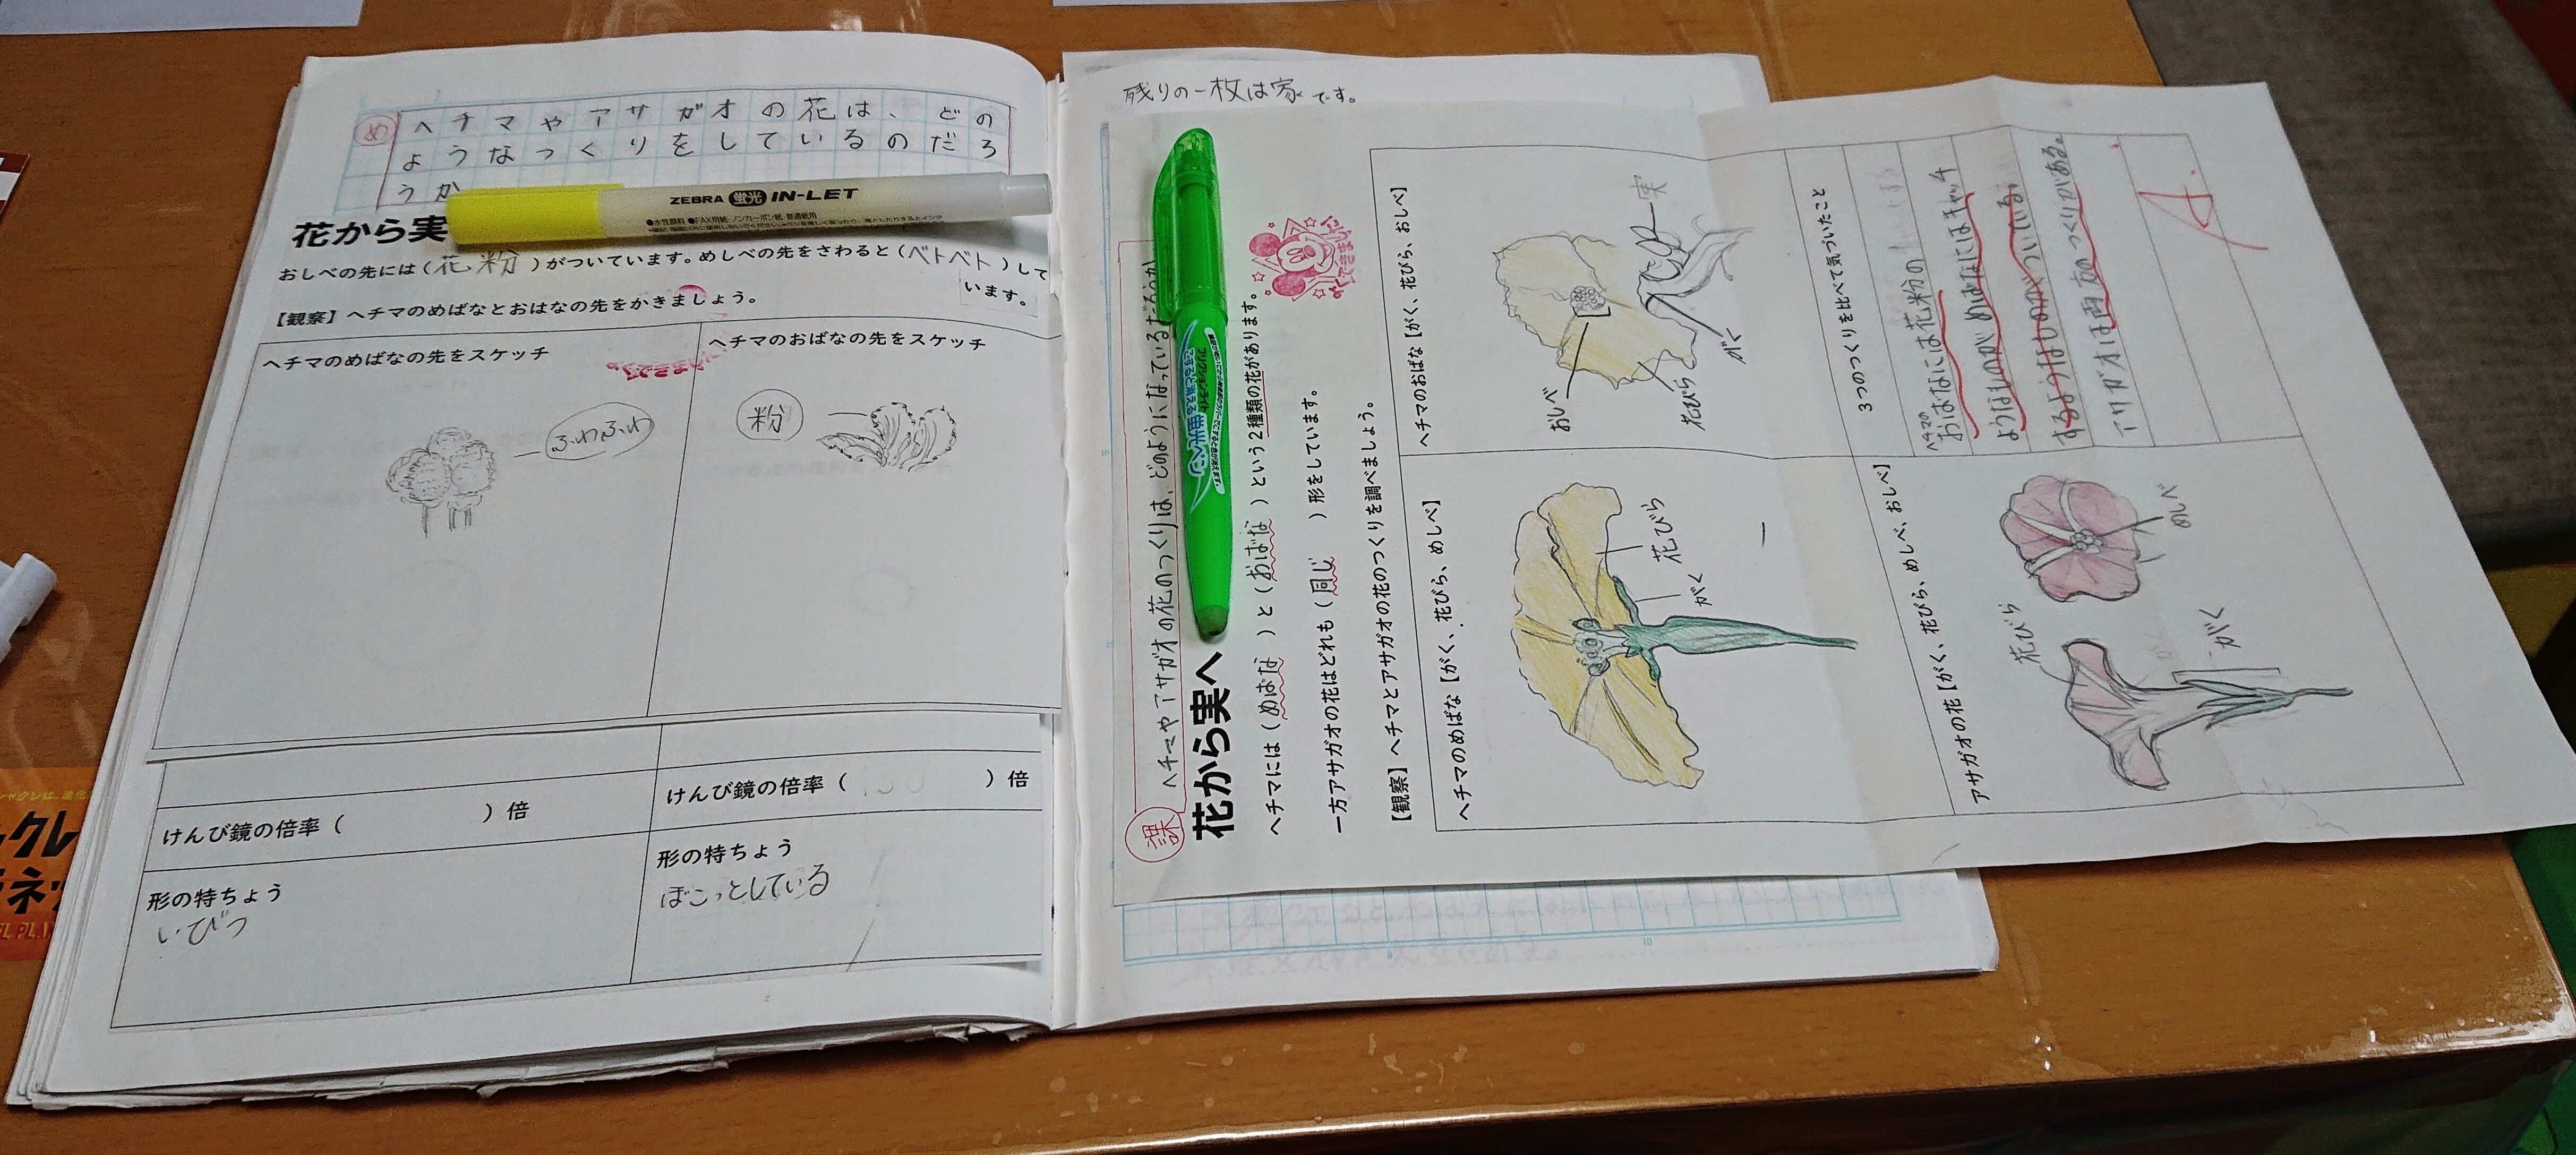 め
ヘチマやアサガオの花は、どの
ようなつくりをしているのだろ
うか
ZEBRA 蛍光 IN-LET
●水性顔料 ●FAX用紙・ノンカーボン紙・普通紙用
花から実
おしべの先には(花粉)がついています。めしべの先をさわると(ベトベト)して
います。
【観察】ヘチマのめばなとおばなの先をかきましょう。
ヘチマのめばなの先をスケッチ
ふわふわ
ヘチマのおばなの先をスケッチ
粉
けんび鏡の倍率( )倍
けんび鏡の倍率( )倍
形の特ちょう
いびつ
形の特ちょう
ぼこっとしている
残りの一枚は家です。
課
ヘチマやアサガオの花のつくりは、どのようになっているだろうか
蛍光ペン
花から実へ
ヘチマには(めばな)と(おばな)という2種類の花があります。
一方アサガオの花はどれも(同じ)形をしています。
【観察】ヘチマとアサガオの花のつくりを調べましょう。
ヘチマのめばな【がく、花びら、めしべ】
花びら
がく
ヘチマのおばな【がく、花びら、おしべ】
おしべ
花びら
がく
実
アサガオの花【がく、花びら、めしべ、おしべ】
花びら
がく
めしべ
3つのつくりを比べて気づいたこと
ヘチマの
おばなには花粉の
ようなものが めばなにはキャッチ
するようなものがついている。
アサガオは両方のつくりがある。
A